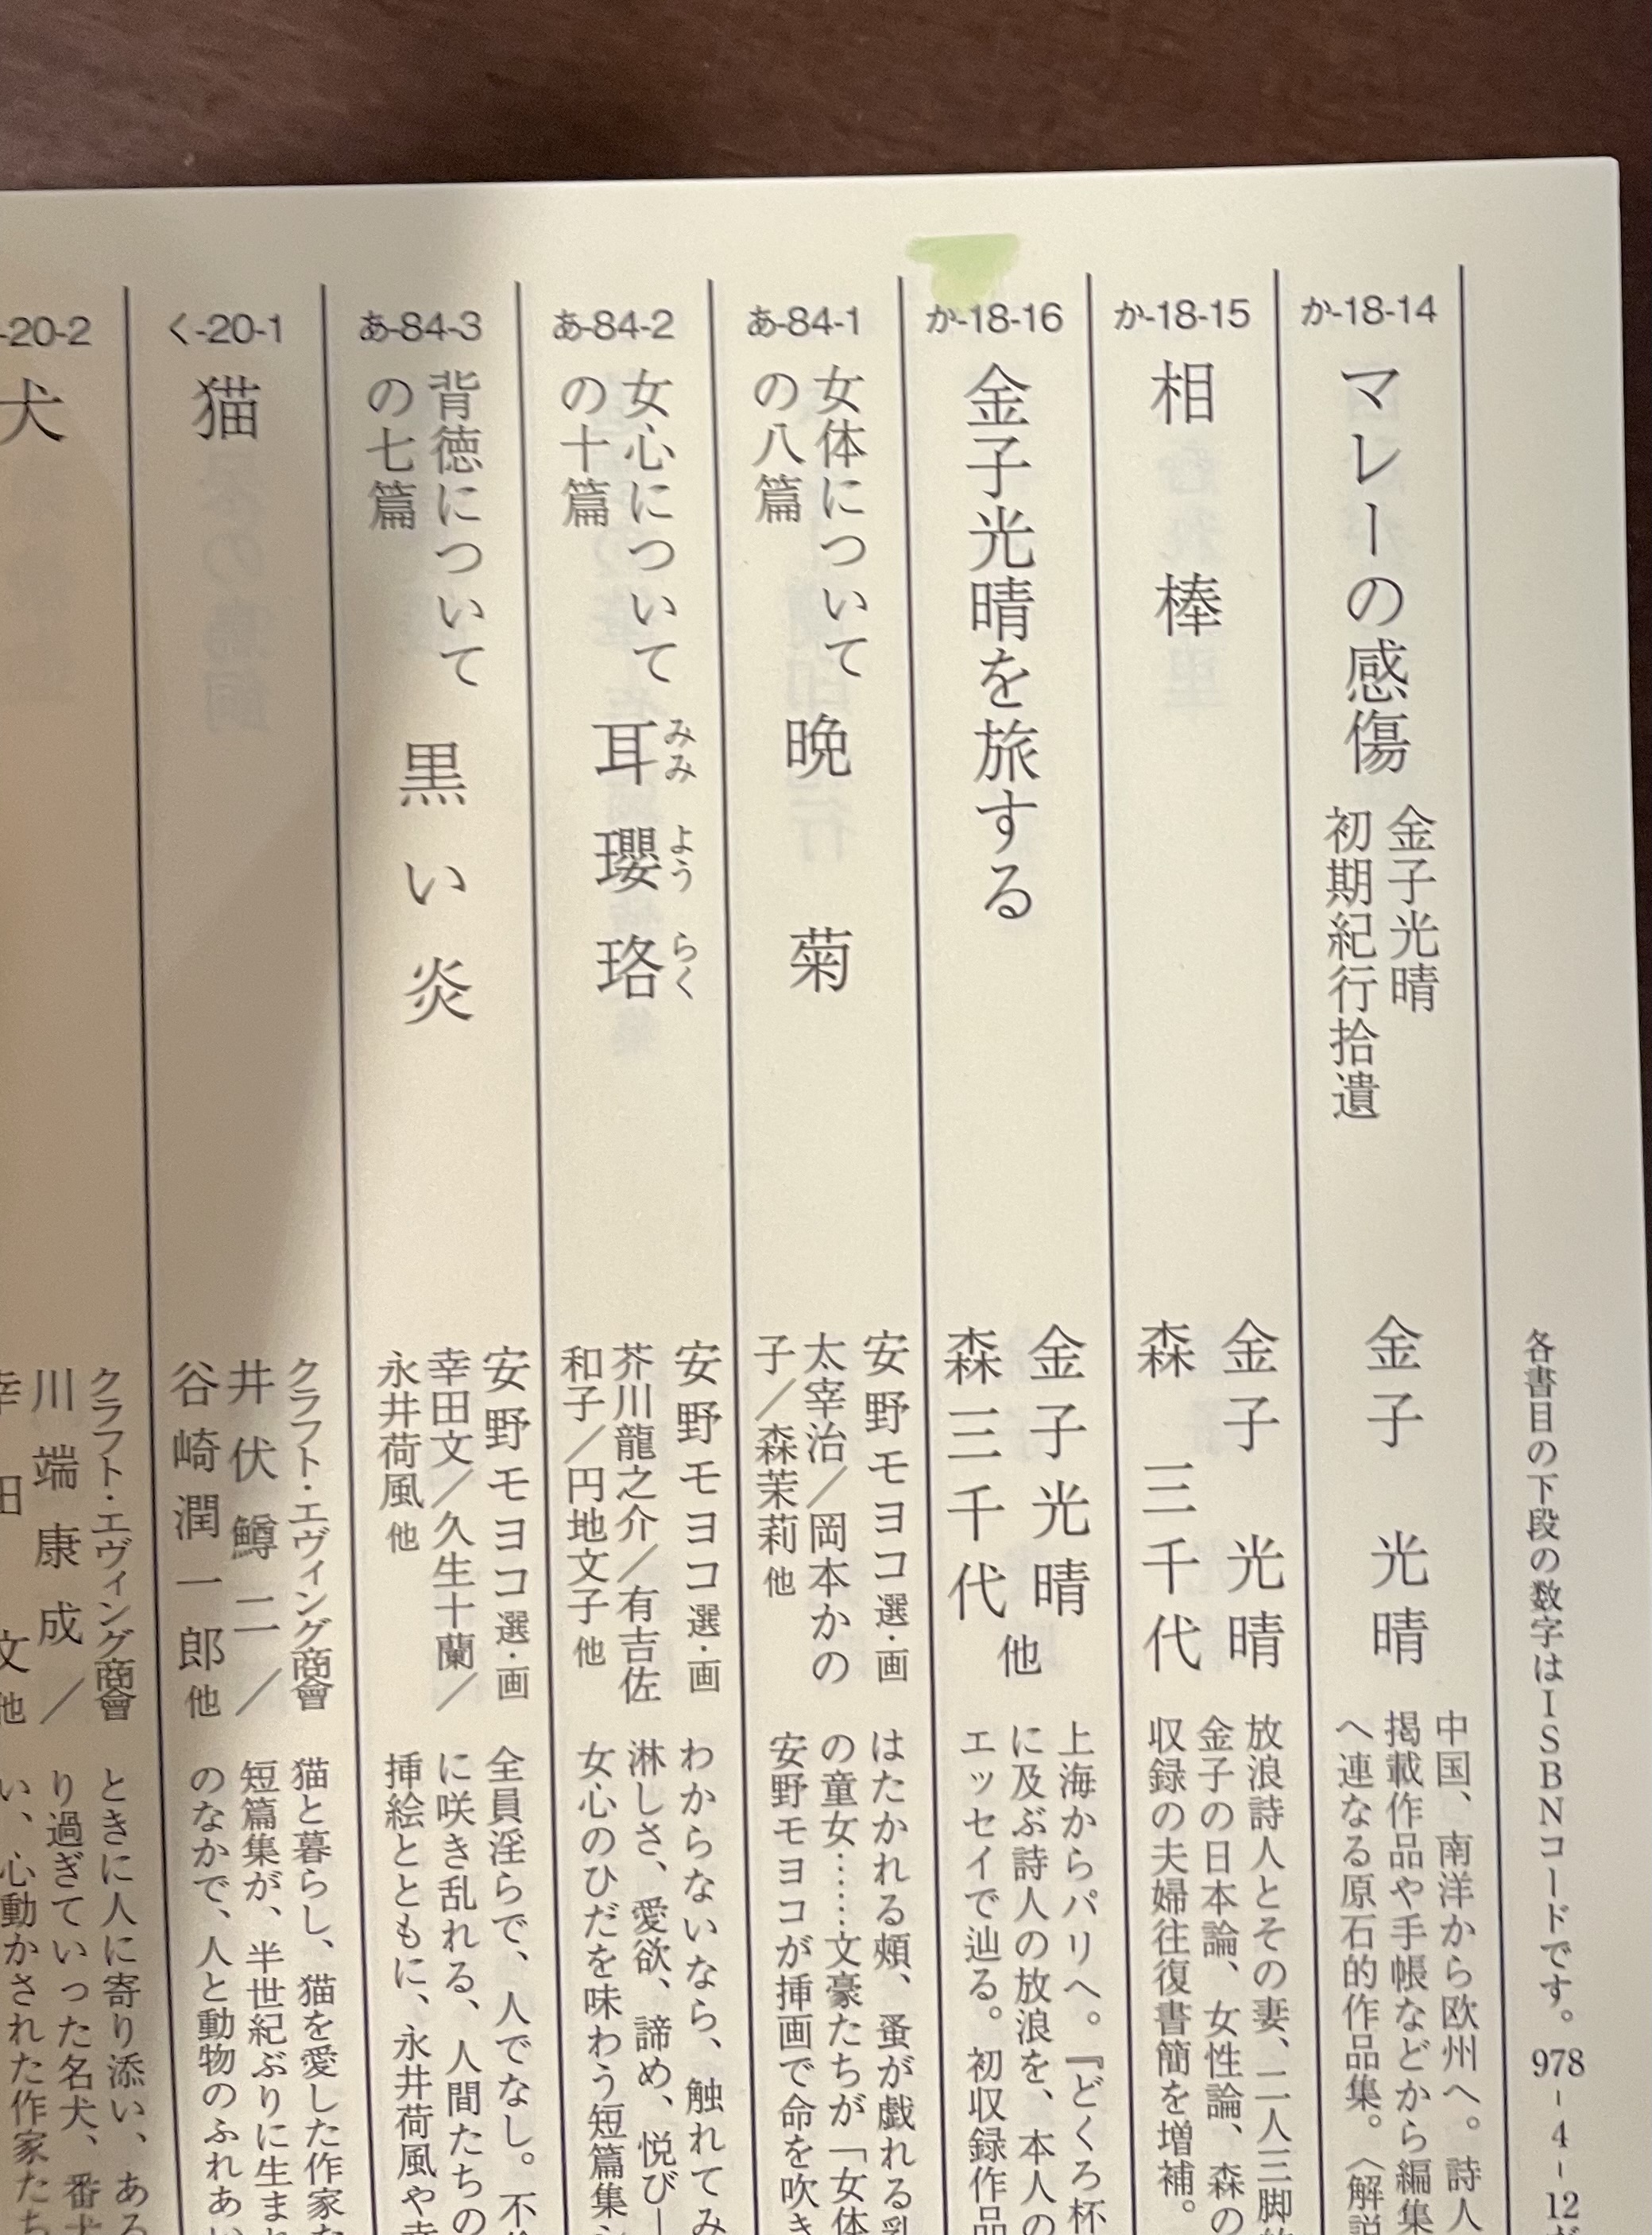 各書目の下段の数字はISBNコードです。978-4-12
か-18-14
マレーの感傷
金子光晴
初期紀行拾遺
金子 光晴
中国、南洋から欧州へ。詩人
掲載作品や手帳などから編集
へ連なる原石的作品集。〈解説
か-18-15
相棒
金子 光晴
森 三千代
放浪詩人とその妻、二人三脚的
金子の日本論、女性論、森の
収録の夫婦往復書簡を増補。
か-18-16
金子光晴を旅する
金子光晴
森三千代
他
上海からパリへ。『どくろ杯
に及ぶ詩人の放浪を、本人の
エッセイで辿る。初収録作品
あ-84-1
女体について
の八篇
晩菊
安野モヨコ選・画
太宰治／岡本かの
子／森茉莉 他
はたかれる頬、蚤が戯れる乳
の童女……文豪たちが「女体
安野モヨコが挿画で命を吹き
あ-84-2
女心について
の十篇
耳瓔珞
みみようらく
安野モヨコ選・画
芥川龍之介／有吉佐
和子／円地文子 他
わからないなら、触れてみ
淋しさ、愛欲、諦め、悦び—
女心のひだを味わう短篇集
あ-84-3
背徳について
の七篇
黒い炎
安野モヨコ選・画
幸田文／久生十蘭／
永井荷風 他
全員淫らで、人でなし。不
に咲き乱れる、人間たちの
挿絵とともに、永井荷風や幸
く-20-1
猫
クラフト・エヴィング商會
井伏鱒二／
谷崎潤一郎 他
猫と暮らし、猫を愛した作家
短篇集が、半世紀ぶりに生まれ
のなかで、人と動物のふれあい
-20-2
犬
クラフト・エヴィング商會
川端康成／
幸田文 他
ときに人に寄り添い、ある
り過ぎていった名犬、番犬
い、心動かされた作家たち